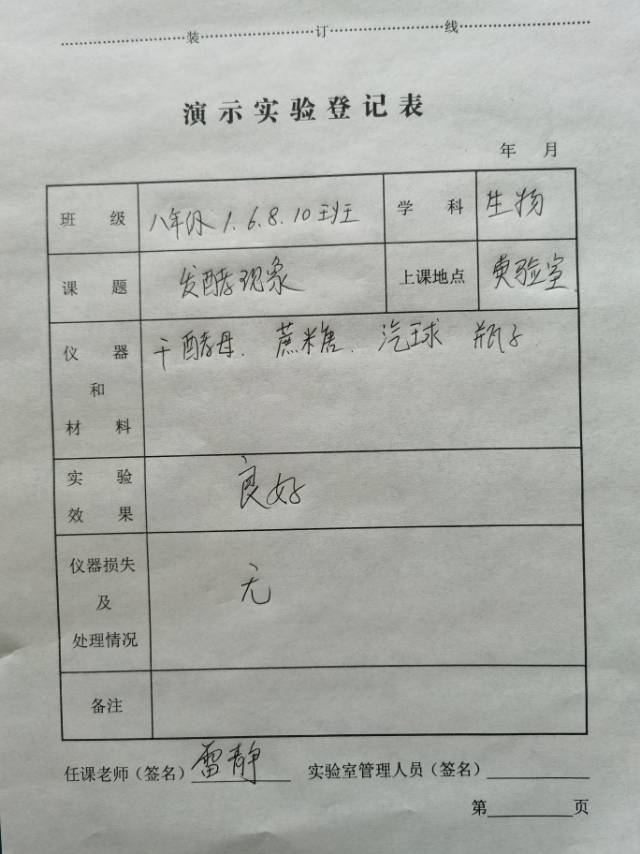 装 订 线
演示实验登记表
年 月
班 级 八年级 1.6.8.10班 学 科 生物
课 题 发酵现象 上课地点 实验室
仪 器 干酵母. 蔗糖. 汽球 瓶子
和
材 料
实 验
效 果 良好
仪器损失
及 无
处理情况
备注
任课老师（签名） 雷静 实验室管理人员（签名）
第 页